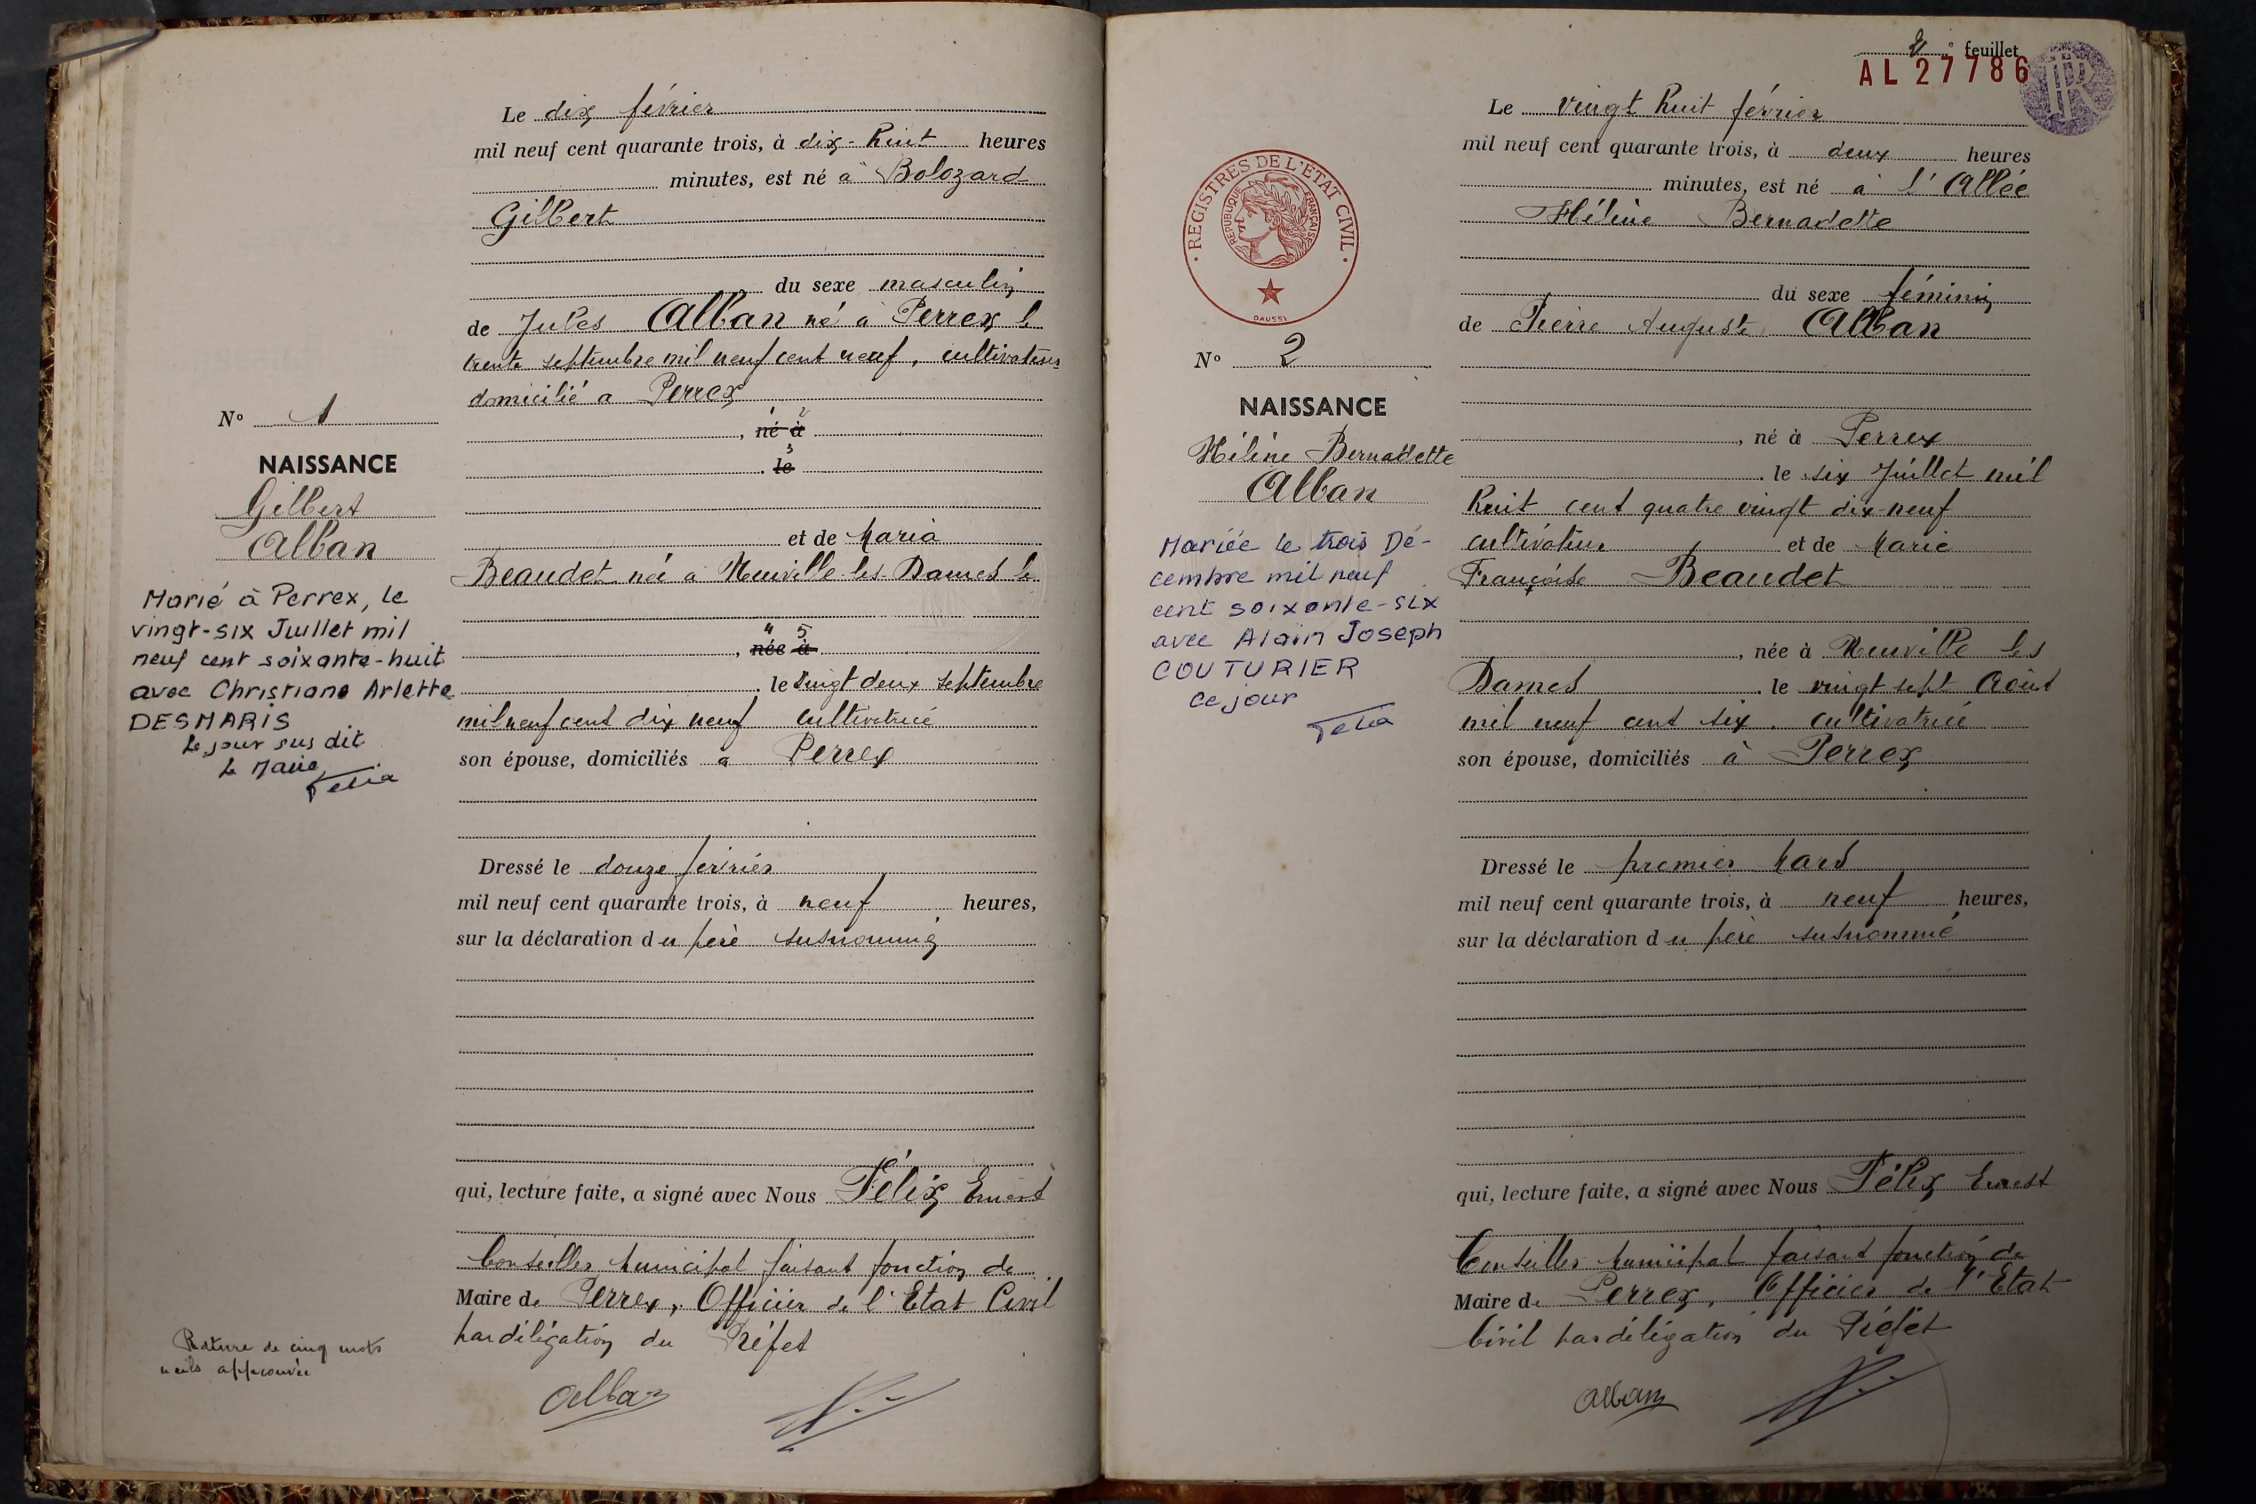 Le dix février
mil neuf cent quarante trois, à dix-huit heures
minutes, est né à Bolozard
Gilbert
du sexe masculin
de Jules Alban né à Perrex le
trente septembre mil neuf cent neuf, cultivateur
domicilié à Perrex
1 2
, né à
3
le
et de Maria
Beaudet née à Neuville-les-Dames le
4 5
, née à
le vingt deux septembre
mil neuf cent dix neuf cultivatrice
son épouse, domiciliés à Perrex
Dressé le douze février
mil neuf cent quarante trois, à neuf heures,
sur la déclaration du père susnommé
qui, lecture faite, a signé avec Nous Félix Ernest
Conseiller Municipal faisant fonction de
Maire de Perrex, Officier de l'Etat Civil
par délégation du Préfet
Alban
N° 1
NAISSANCE
Gilbert
Alban
Marié à Perrex, le
vingt-six Juillet mil
neuf cent soixante-huit
avec Christiane Arlette
DESMARIS
Le jour sus dit
Le Maire
Rature de cinq mots
nuls approuvée
2 e feuillet
AL 27786
REGISTRES DE L'ETAT CIVIL
REPUBLIQUE FRANÇAISE
DAUSSI
N° 2
NAISSANCE
Hélène Bernadette
Alban
Mariée le trois Dé-
cembre mil neuf
cent soixante-six
avec Alain Joseph
COUTURIER
ce jour
Le vingt huit février
mil neuf cent quarante trois, à deux heures
minutes, est né à l'Allée
Hélène Bernadette
du sexe féminin
de Pierre Auguste Alban
, né à Perrex
le six Juillet mil
huit cent quatre vingt dix-neuf
cultivateur et de Marie
Françoise Beaudet
, née à Neuville les
Dames le vingt sept Août
mil neuf cent six, cultivatrice
son épouse, domiciliés à Perrex
Dressé le premier Mars
mil neuf cent quarante trois, à neuf heures,
sur la déclaration du père susnommé
qui, lecture faite, a signé avec Nous Félix Ernest
Conseiller Municipal faisant fonction de
Maire de Perrex, Officier de l'Etat
Civil par délégation du Préfet
Alban